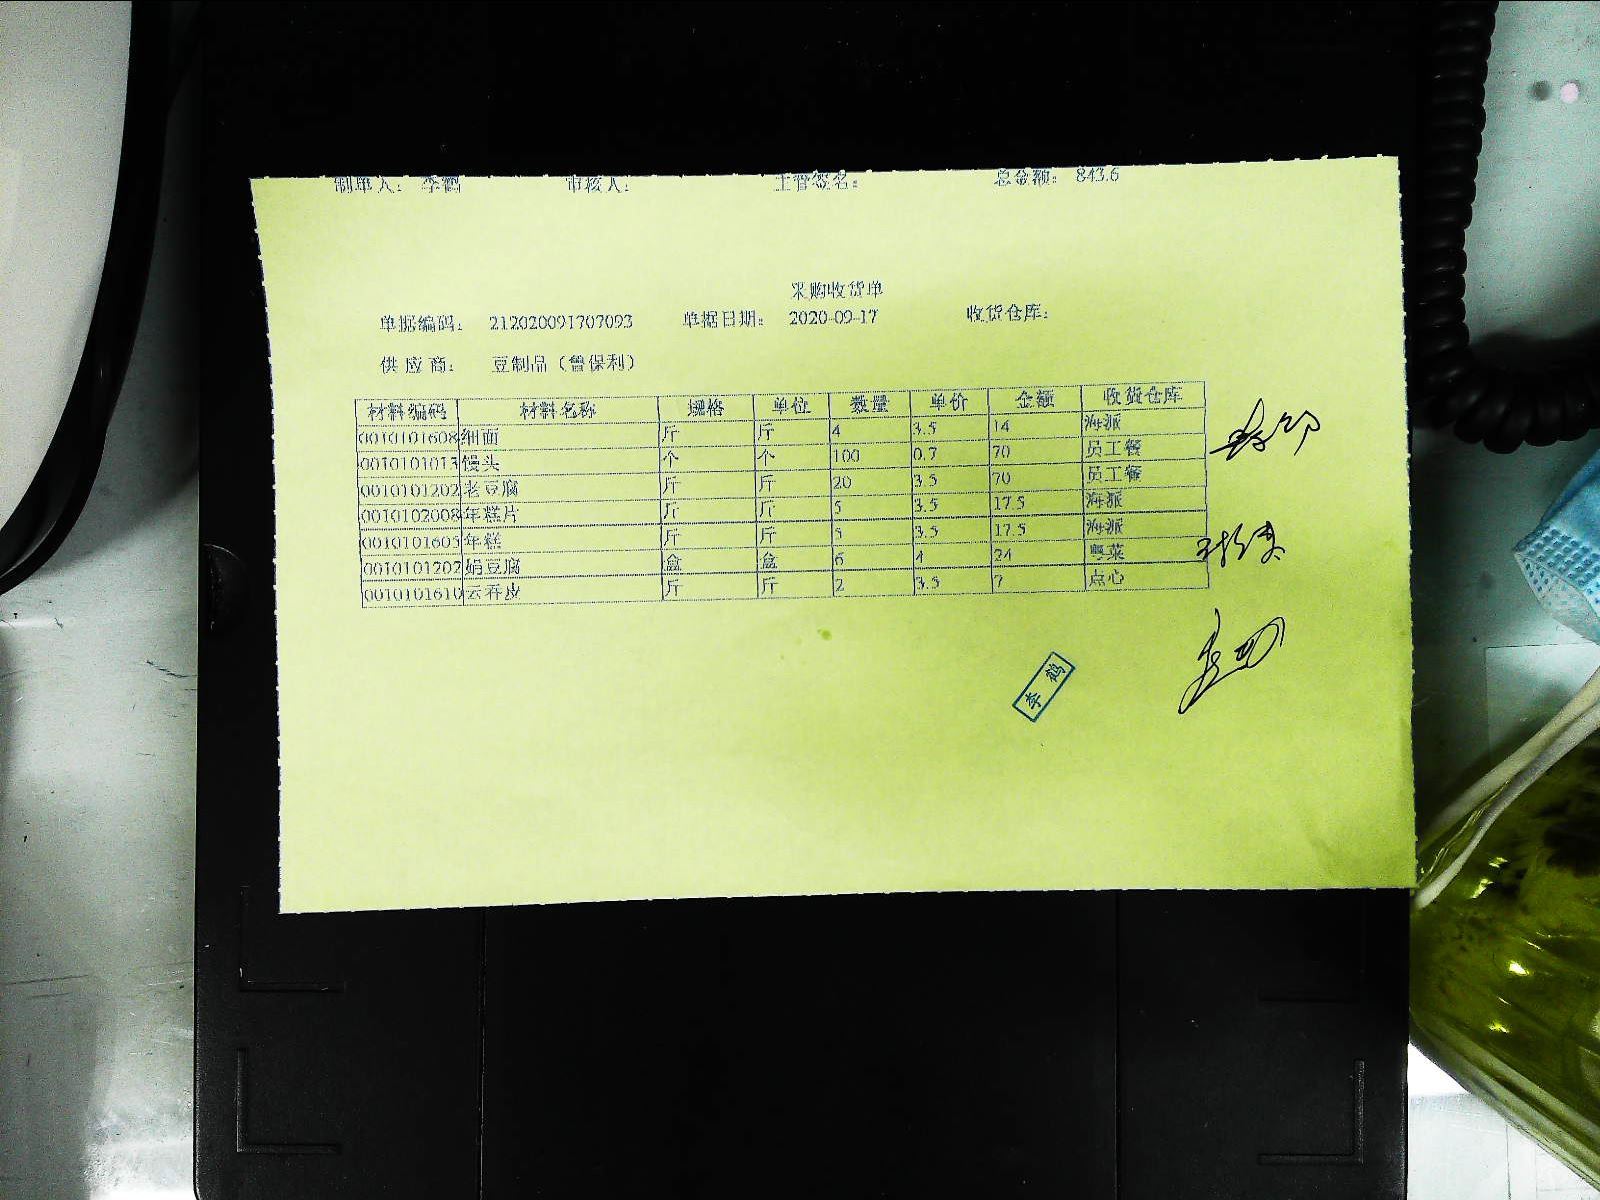 制单人： 李鹤 审核人： 主管签名： 总金额： 843.6
采购收货单
单据编码： 212020091707093 单据日期： 2020-09-17 收货仓库：
供应商： 豆制品（鲁保利）
材料编码 材料名称 规格 单位 数量 单价 金额 收货仓库
0010101608 细面 斤 斤 4 3.5 14 海派
0010101013 馒头 个 个 100 0.7 70 员工餐
0010101202 老豆腐 斤 斤 20 3.5 70 员工餐
0010102008 年糕片 斤 斤 5 3.5 17.5 海派
0010101605 年糕 斤 斤 5 3.5 17.5 海派
0010101202 绢豆腐 盒 盒 6 4 24 粤菜
0010101610 云吞皮 斤 斤 2 3.5 7 点心
李鹤